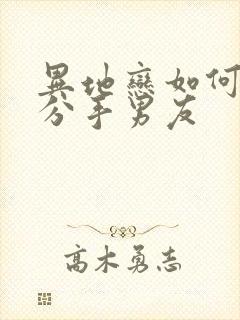 異地戀如何
分手男友
高木勇志